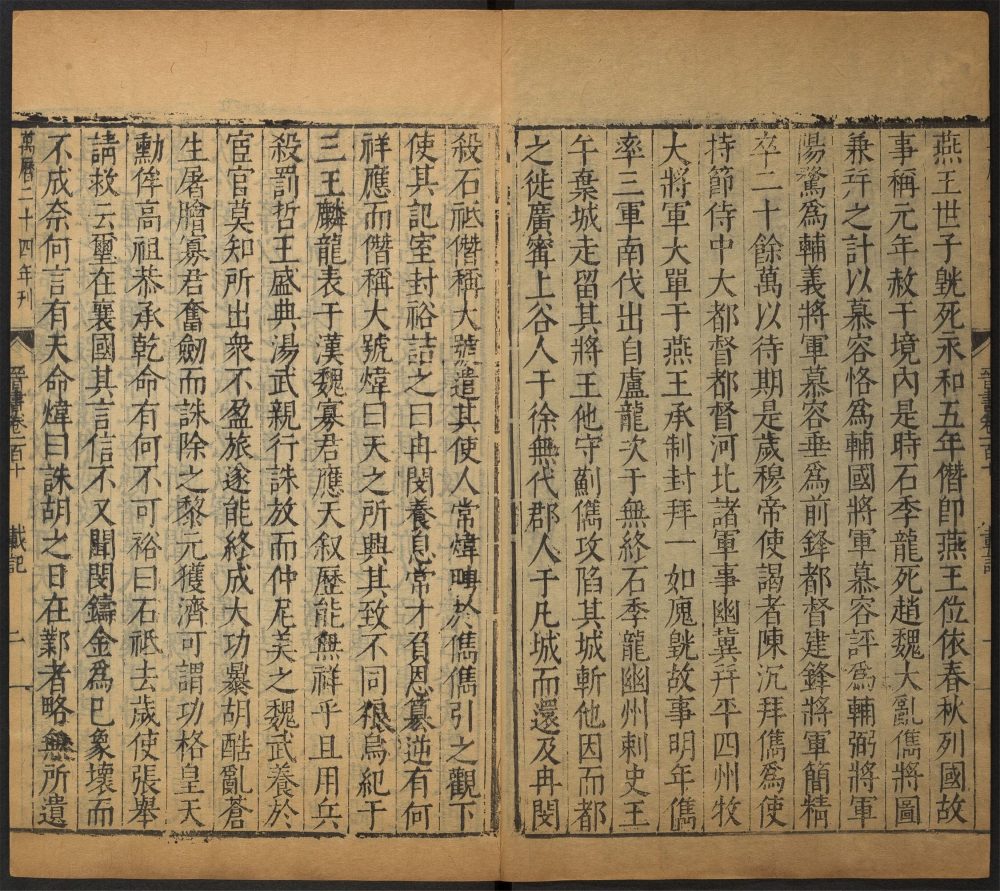 燕王世子皝死永和五年僭卽燕王位依春秋列國故
事稱元年赦于境內是時石季龍死趙魏大亂儁將圖
兼幷之計以慕容恪爲輔國將軍慕容評爲輔弼將軍
陽騖爲輔義將軍慕容垂爲前鋒都督建鋒將軍簡精
卒二十餘萬以待期是歲穆帝使謁者陳沉拜儁爲使
持節侍中大都督都督河北諸軍事幽冀幷平四州牧
大將軍大單于燕王承制封拜一如廆皝故事明年儁
率三軍南伐出自盧龍次于無終石季龍幽州刺史王
午棄城走留其將王他守薊儁攻陷其城斬他因而都
之徙廣甯上谷人于徐無代郡人于凡城而還及冉閔
殺石祗僭稱大號遣其使人常煒聘於儁儁引之觀下
使其記室封裕詰之曰冉閔養息常才負恩篡逆有何
祥應而僭稱大號煒曰天之所興其致不同狼烏紀于
三王麟龍表于漢魏寡君應天叙歷能無祥乎且用兵
殺罰哲王盛典湯武親行誅放而仲尼美之魏武養於
宦官莫知所出衆不盈旅遂能終成大功暴胡酷亂蒼
生屠膾寡君奮劒而誅除之黎元獲濟可謂功格皇天
勳侔高祖恭承乾命有何不可裕曰石祗去歲使張舉
請救云璽在襄國其言信不又聞閔鑄金爲已象壞而
不成柰何言有天命煒曰誅胡之日在鄴者略無所遺
萬曆二十四年刊
晉書卷一百十 載記 二